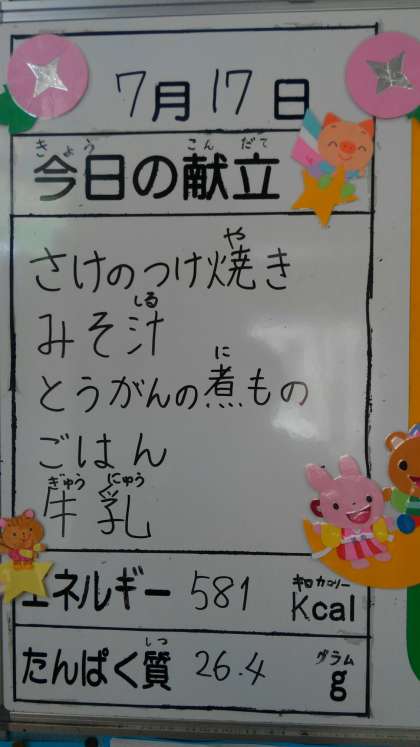 7月17日
きょう こんだて
今日の献立
や
さけのつけ焼き
しる
みそ汁
に
とうがんの煮もの
ごはん
ぎゅう にゅう
牛乳
エネルギー 581 キロカロリー Kcal
しつ グラム
たんぱく質 26.4 g